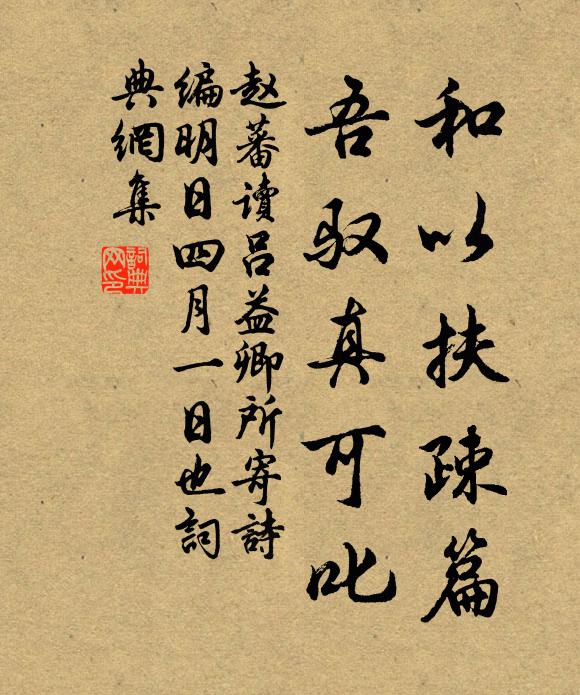 和以扶疎篇
吾驭真可叱
赵蕃讀吕益卿所寄詩
编明日四月一日也詞
典網集
詞典网印